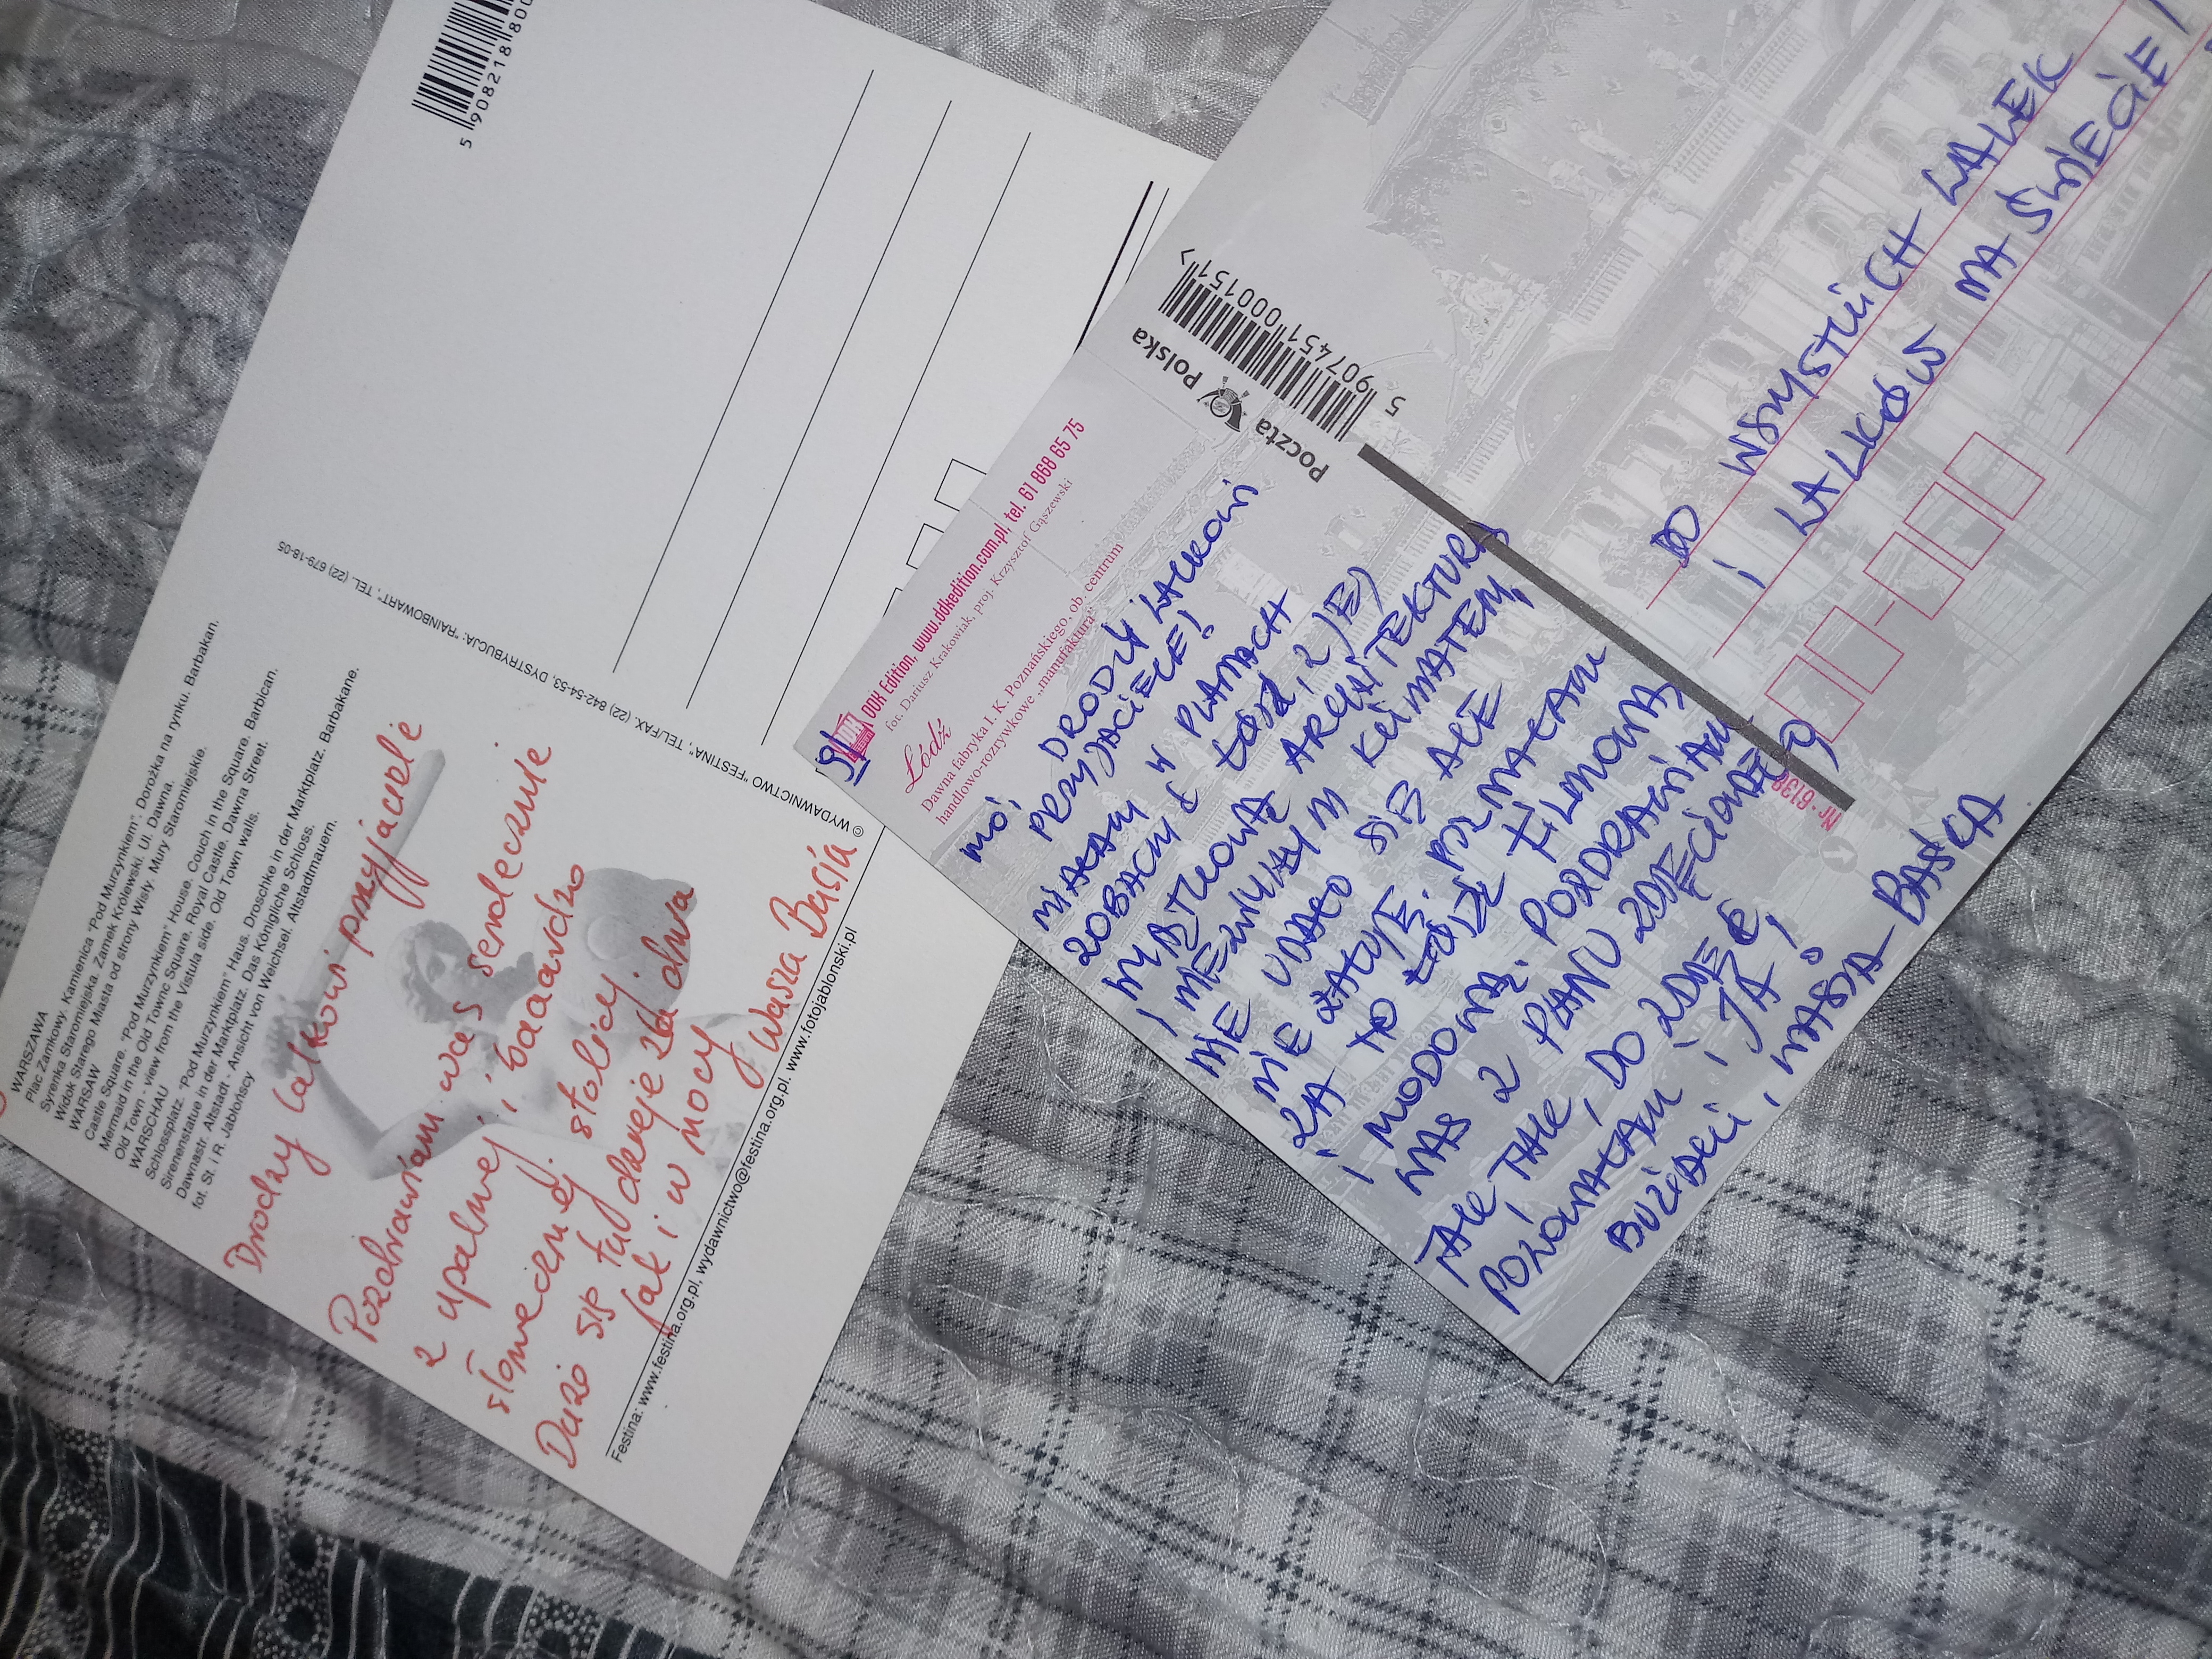 5 908218 800
WARSZAWA
Plac Zamkowy. Kamienica "Pod Murzynkiem". Dorożka na rynku. Barbakan.
Syrenka Staromiejska. Zamek Królewski. Ul. Dawna.
Widok Starego Miasta od strony Wisły. Mury Staromiejskie.
WARSAW
Castle Square. "Pod Murzynkiem" House. Couch in the Square. Barbican.
Mermaid in the Old Townc Square. Royal Castle. Dawna Street.
Old Town - view from the Vistula side. Old Town walls.
WARSCHAU
Schlossplatz. "Pod Murzynkiem" Haus. Droschke in der Marktplatz. Barbakane.
Sirenenstatue in der Marktplatz. Das Königliche Schloss.
Dawnastr. Altstadt - Ansicht von Weichsel. Altstadtmauern.
fot. St. i R. Jabłońscy
Drodzy lalkowi przyjaciele
Pozdrawiam was serdecznie
z upalnej i baaardzo
słonecznej stolicy.
Dużo się tu dzieje za dnia
jak i w nocy
Wasza Basia
Festina: www.festina.org.pl, wydawnictwo@festina.org.pl. www.fotojablonski.pl
© WYDAWNICTWO "FESTINA", TEL/FAX. (22) 842-54-53, DYSTRYBUCJA: "RAINBOWART", TEL. (22) 679-18-05
DDK Edition, www.ddkedition.com.pl, tel. 61 868 65 75
fot. Dariusz Krakowiak, proj. Krzysztof Gąszewski
Łódź
Dawna fabryka I. K. Poznańskiego, ob. centrum
handlowo-rozrywkowe „manufaktura"
Poczta Polska
5 907451 000151 >
MOI DRODZY LALKOWI
PRZYJACIELE!
MIAŁAM W PLANACH
ZOBACZYĆ ŁÓDŹ, Z JEJ
WYJĄTKOWĄ ARCHITEKTURĄ
I NIEZWYKŁYM KLIMATEM,
NIE UDAŁO SIĘ ALE
NIE ŻAŁUJĘ.
ZA TO POZNAŁAM
ŁÓDŹ FILMOWĄ
I MODOWĄ. POZDRAWIAM
WAS Z PLANU ZDJĘCIOWEGO
TAK, TAK, DO ZDJĘĆ
POZOWAŁAM I JA,
BUZIACZKI, WASZA BAŚKA
DO WSZYSTKICH LALEK
I LALKÓW NA ŚWIECIE!